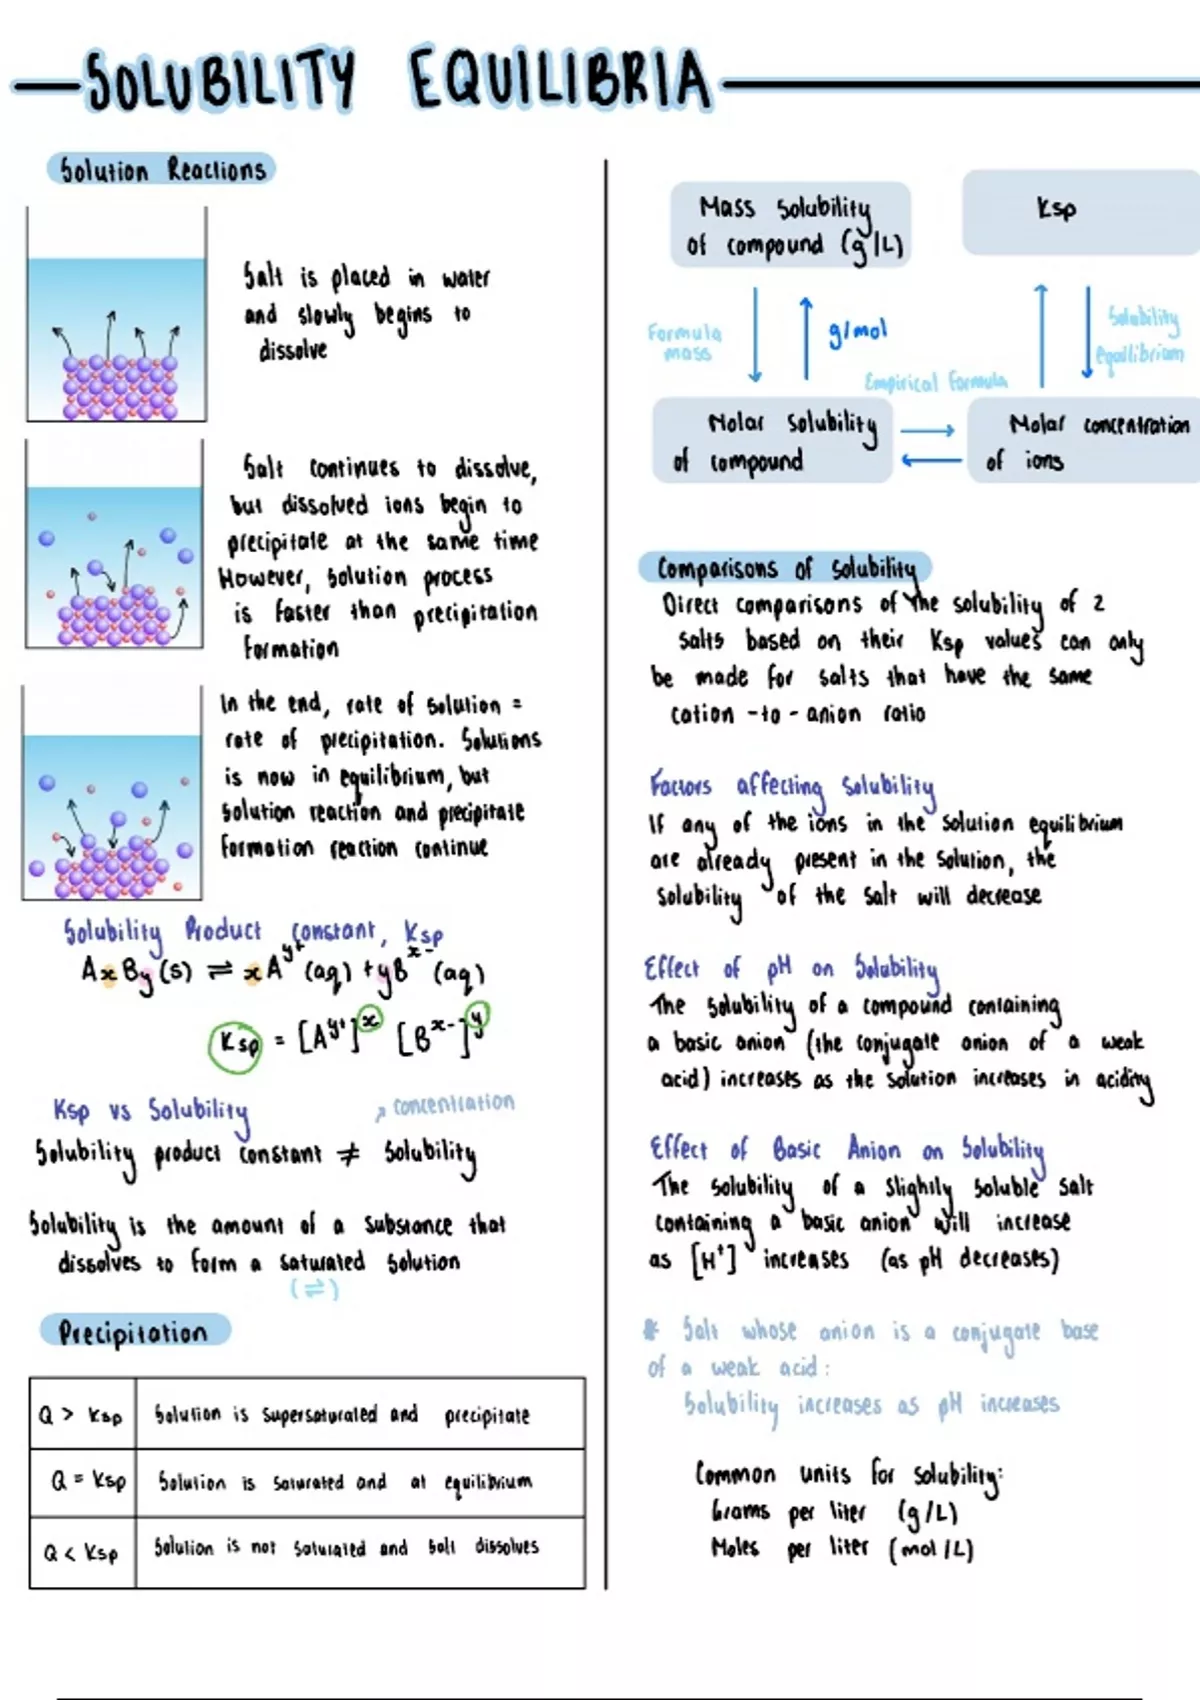 SOLUBILITY EQUILIBRIA
Solution Reactions
Salt is placed in water
and slowly begins to
dissolve
Salt continues to dissolve,
but dissolved ions begin to
precipitate at the same time
However, solution process
is faster than precipitation
formation
In the end, rate of solution =
rate of precipitation. Solutions
is now in equilibrium, but
solution reaction and precipitate
formation reaction continue
Solubility Product constant, Ksp
AxBy(s) ⇌ xA^y+ (aq) + yB^x- (aq)
Ksp = [A^y+]^x [B^x-]^y
Ksp vs Solubility
concentration
Solubility product constant ≠ Solubility
Solubility is the amount of a substance that
dissolves to form a saturated solution
(⇌)
Precipitation
Q > Ksp Solution is supersaturated and precipitate
Q = Ksp Solution is saturated and at equilibrium
Q < Ksp Solution is not saturated and salt dissolves
Mass solubility
of compound (g/L)
Ksp
Formula
mass
g/mol
Solubility
equilibrium
Empirical Formula
Molar solubility
of compound
Molar concentration
of ions
Comparisons of solubility
Direct comparisons of the solubility of 2
salts based on their Ksp values can only
be made for salts that have the same
cation-to-anion ratio
Factors affecting solubility
If any of the ions in the solution equilibrium
are already present in the solution, the
solubility of the salt will decrease
Effect of pH on Solubility
The solubility of a compound containing
a basic anion (the conjugate anion of a weak
acid) increases as the solution increases in acidity
Effect of Basic Anion on Solubility
The solubility of a slightly soluble salt
containing a basic anion will increase
as [H+] increases (as pH decreases)
* Salt whose anion is a conjugate base
of a weak acid:
Solubility increases as pH increases
Common units for solubility:
Grams per liter (g/L)
Moles per liter (mol/L)